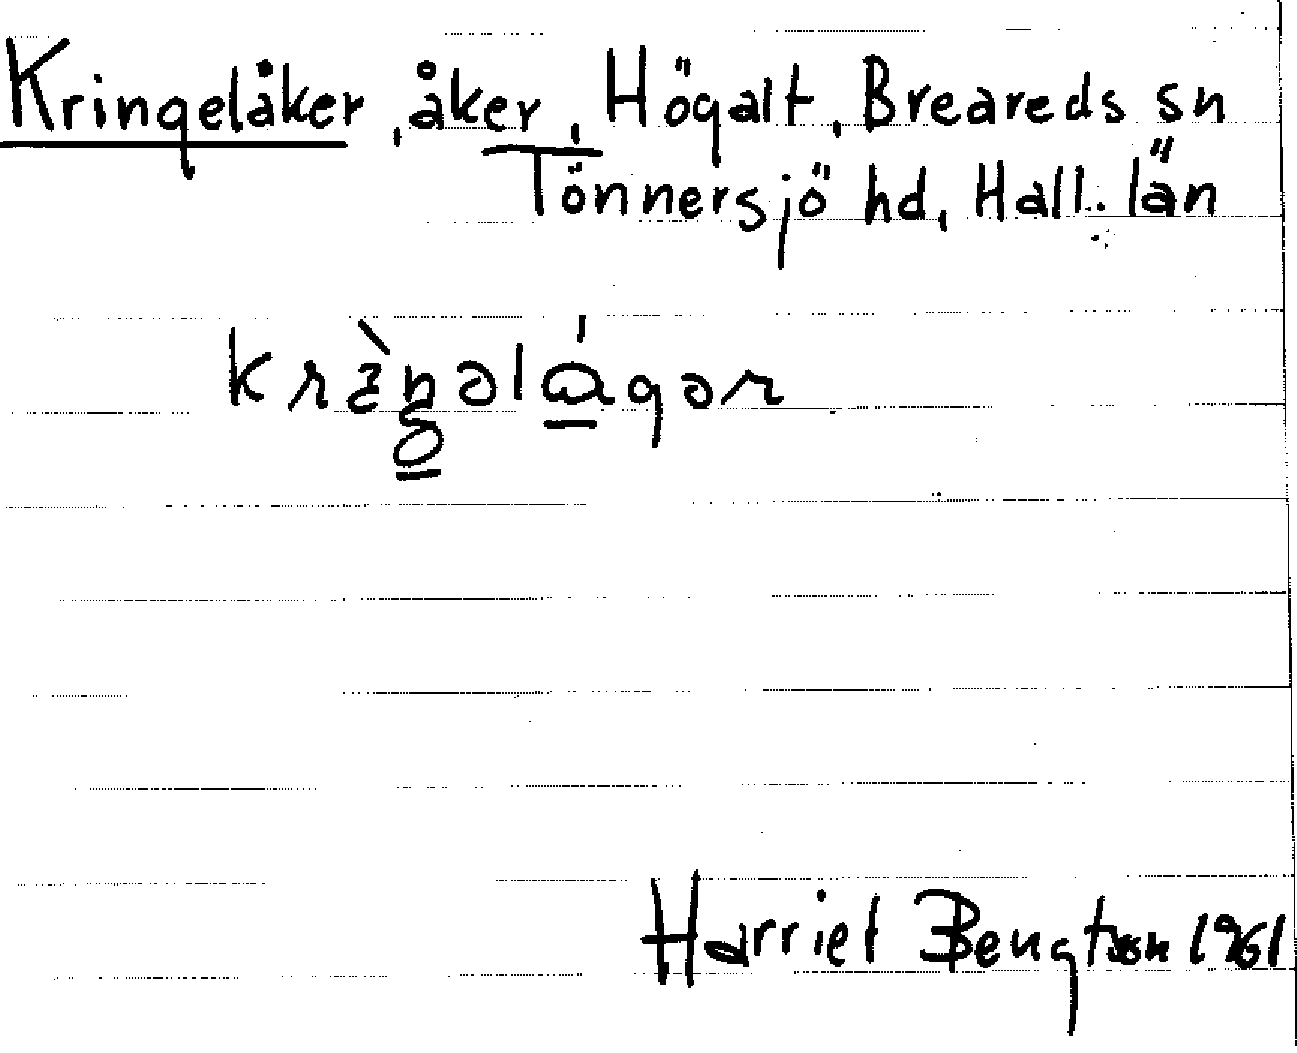 Kringelåker, åker, Högalt, Breareds sn
Tönnersjö hd, Hall. län
Harriet Bengtsson 1961